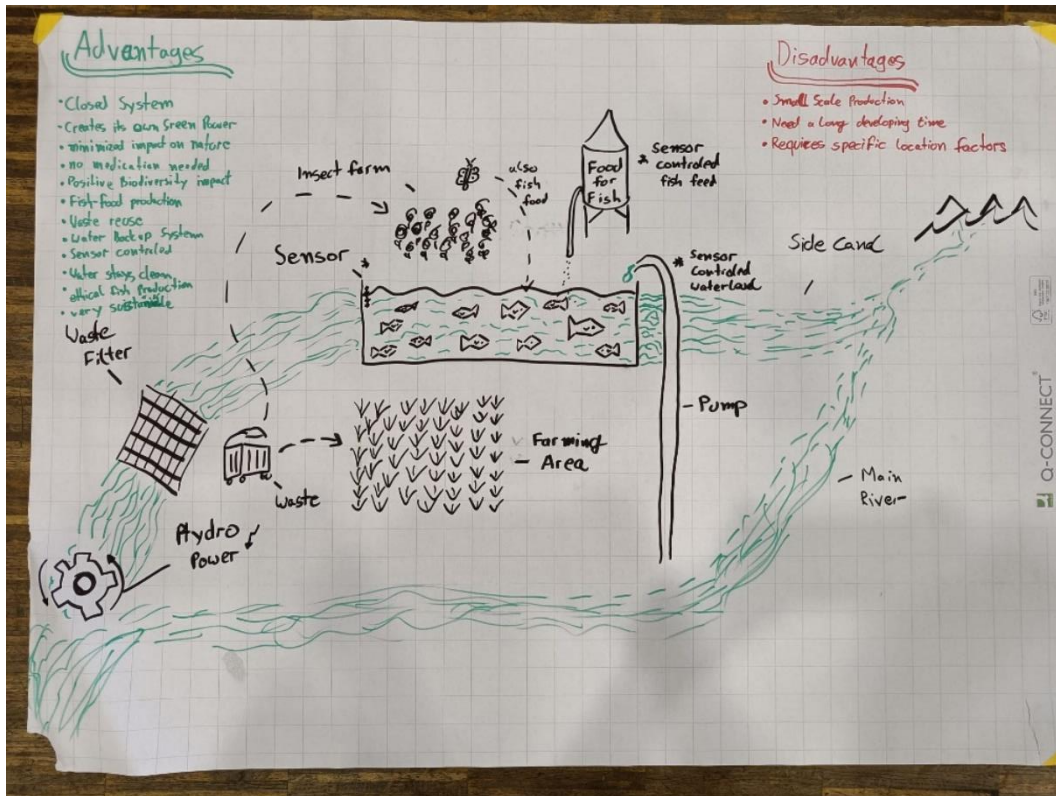 Advantages
• Closed System
• Creates its own Green Power
• minimized impact on nature
• no medication needed
• Positive Biodiversity impact
• Fish-food production
• Waste reuse
• Water Backup System
• Sensor controled
• Water stays clean
• ethical fish production
• very sustainable
Disadvantages
• Small Scale Production
• Need a long developing time
• Requires specific location factors
Insect farm
also
fish
food
Food
for
Fish
Sensor
* controled
fish feed
Sensor *
* Sensor
controled
Side Canal
Waste
Filter
Pump
Farming
Area
Waste
Main
River
Hydro
Power
Q-CONNECT